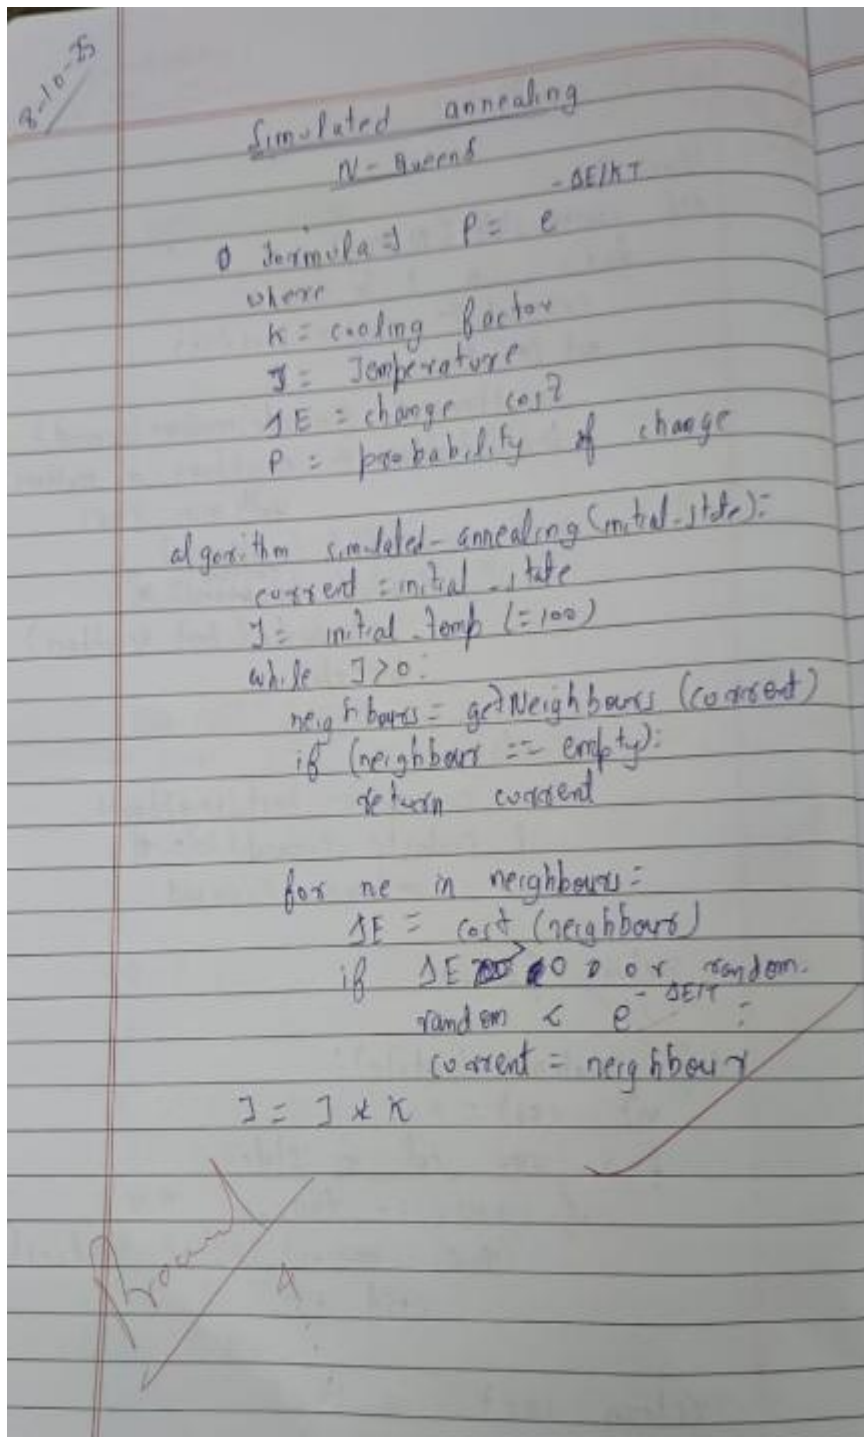 8-10-25
Simulated annealing
N-Queens
Formula ⇒ P = e^-ΔE/KT
where
K = cooling factor
T = Temperature
ΔE = change cost
P = probability of change
algorithm simulated-annealing (initial_state):
current = initial_state
T = initial_temp (=100)
while T>0:
neighbours = getNeighbours (current)
if (neighbour == empty):
return current
for ne in neighbours:
ΔE = cost (neighbour)
if ΔE > 0 or random.
random < e^-ΔE/T :
current = neighbour
T = T * K